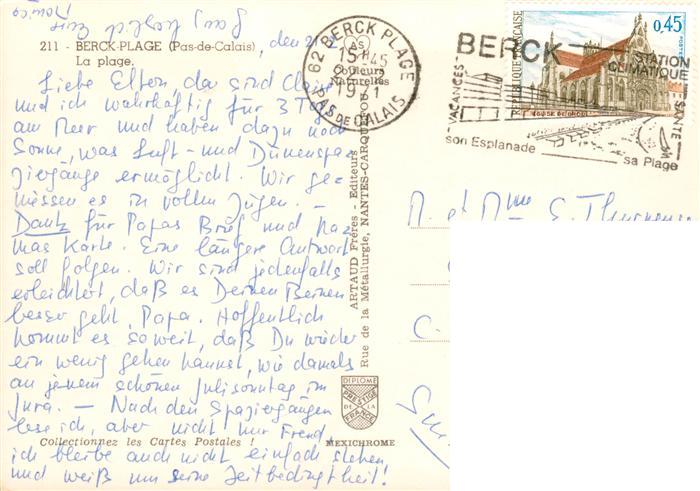 211 - BERCK-PLAGE (Pas-de-Calais)
La plage.
Liebe Eltern, da sind
und ich wahrhaftig für 3 Tage
am Meer und haben dazu noch
Sonne, was Luft- und Dünenspa-
ziergänge ermöglicht. Wir ge-
niessen es in vollen Zügen. –
Dank für Papas Brief und Ma-
mas Karte. Eine längere Antwort
soll folgen. Wir sind jedenfalls
erleichtert, daß es Deinen Beinen
besser geht, Papa. Hoffentlich
kommt es soweit, daß Du wieder
ein wenig gehen kannst, wie damals
an jenem schönen Julisonntag im
Jura. – Nach den Spaziergängen
lese ich, aber nicht nur Freud,
ich bleibe auch nicht einfach stehen
und weiß um seine Zeitbedingtheit!
Collectionnez les Cartes Postales !
MEXICHROME
ARTAUD Frères - Editeurs
Rue de la Métallurgie, NANTES-CARQUEFOU
As
Couleurs
Naturelles
DIPLOME
PRESTIGE
DE LA
FRANCE
62 BERCK PLAGE
15H45
1971
PAS DE CALAIS
BERCK
STATION
CLIMATIQUE
VACANCES
SANTE
son Esplanade
sa Plage
REPUBLIQUE FRANÇAISE
0,45
POSTES
M. et Mme
C.